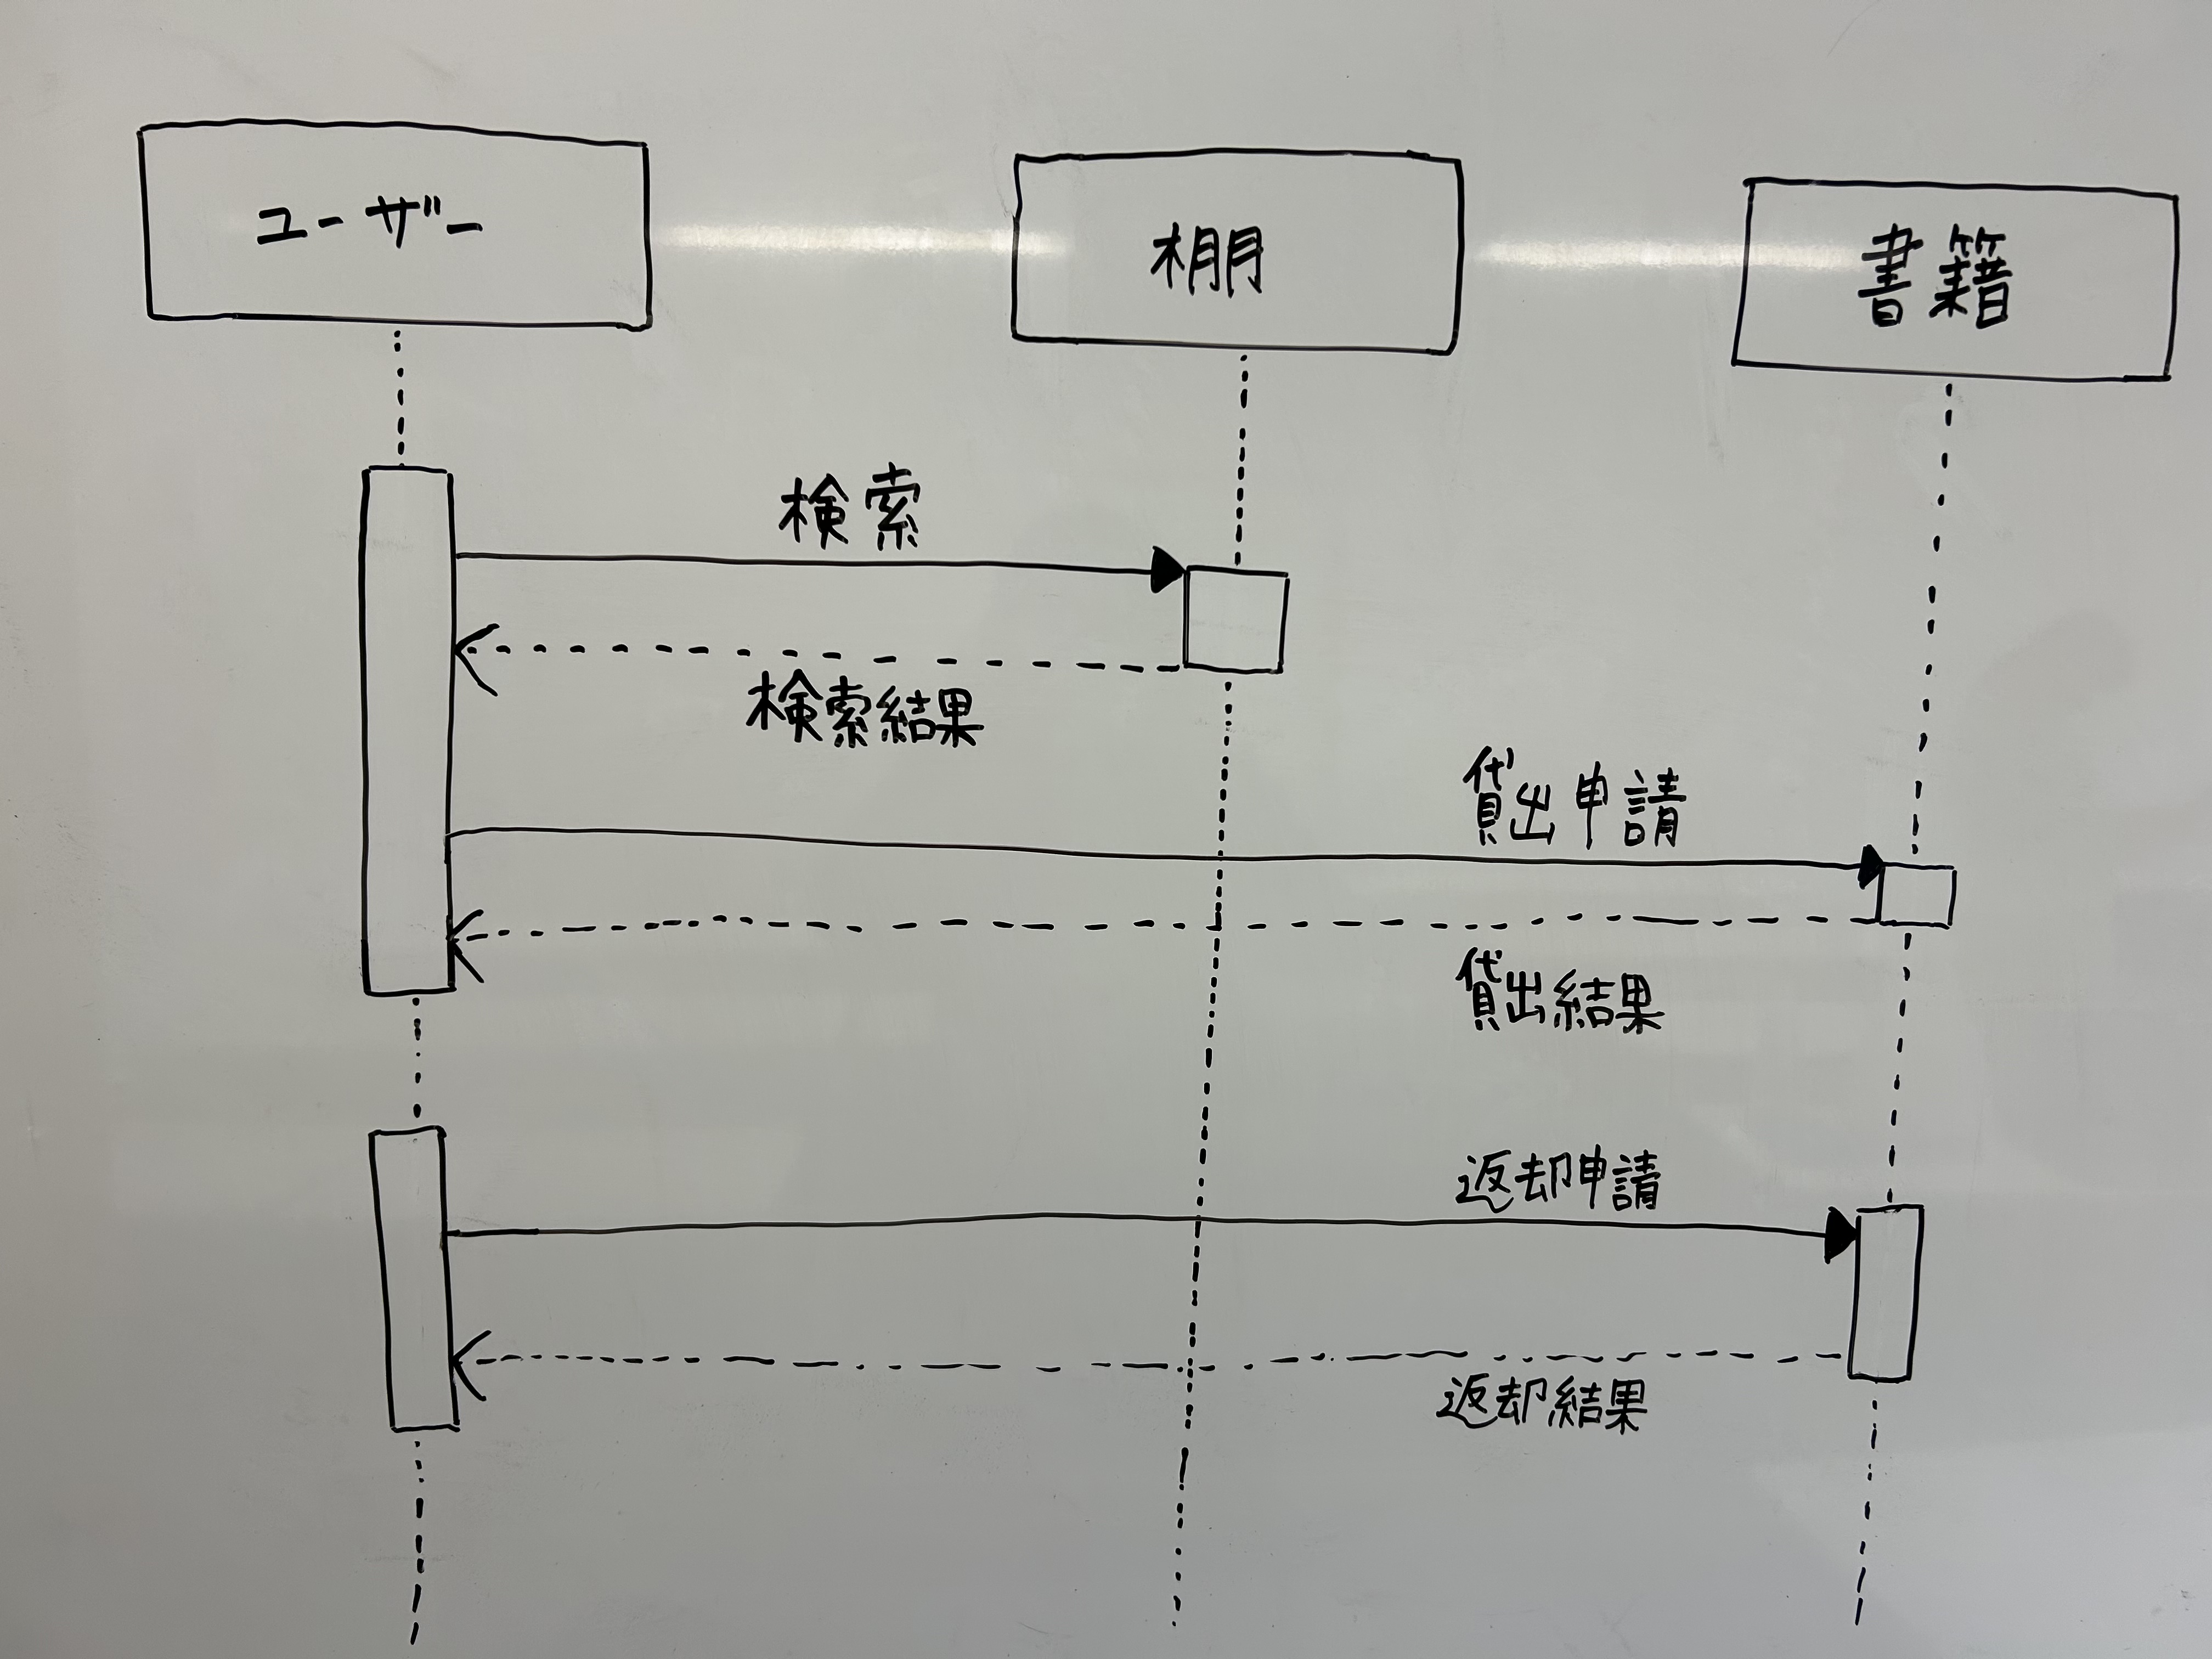 ユーザー
棚
書籍
検索
検索結果
貸出申請
貸出結果
返却申請
返却結果